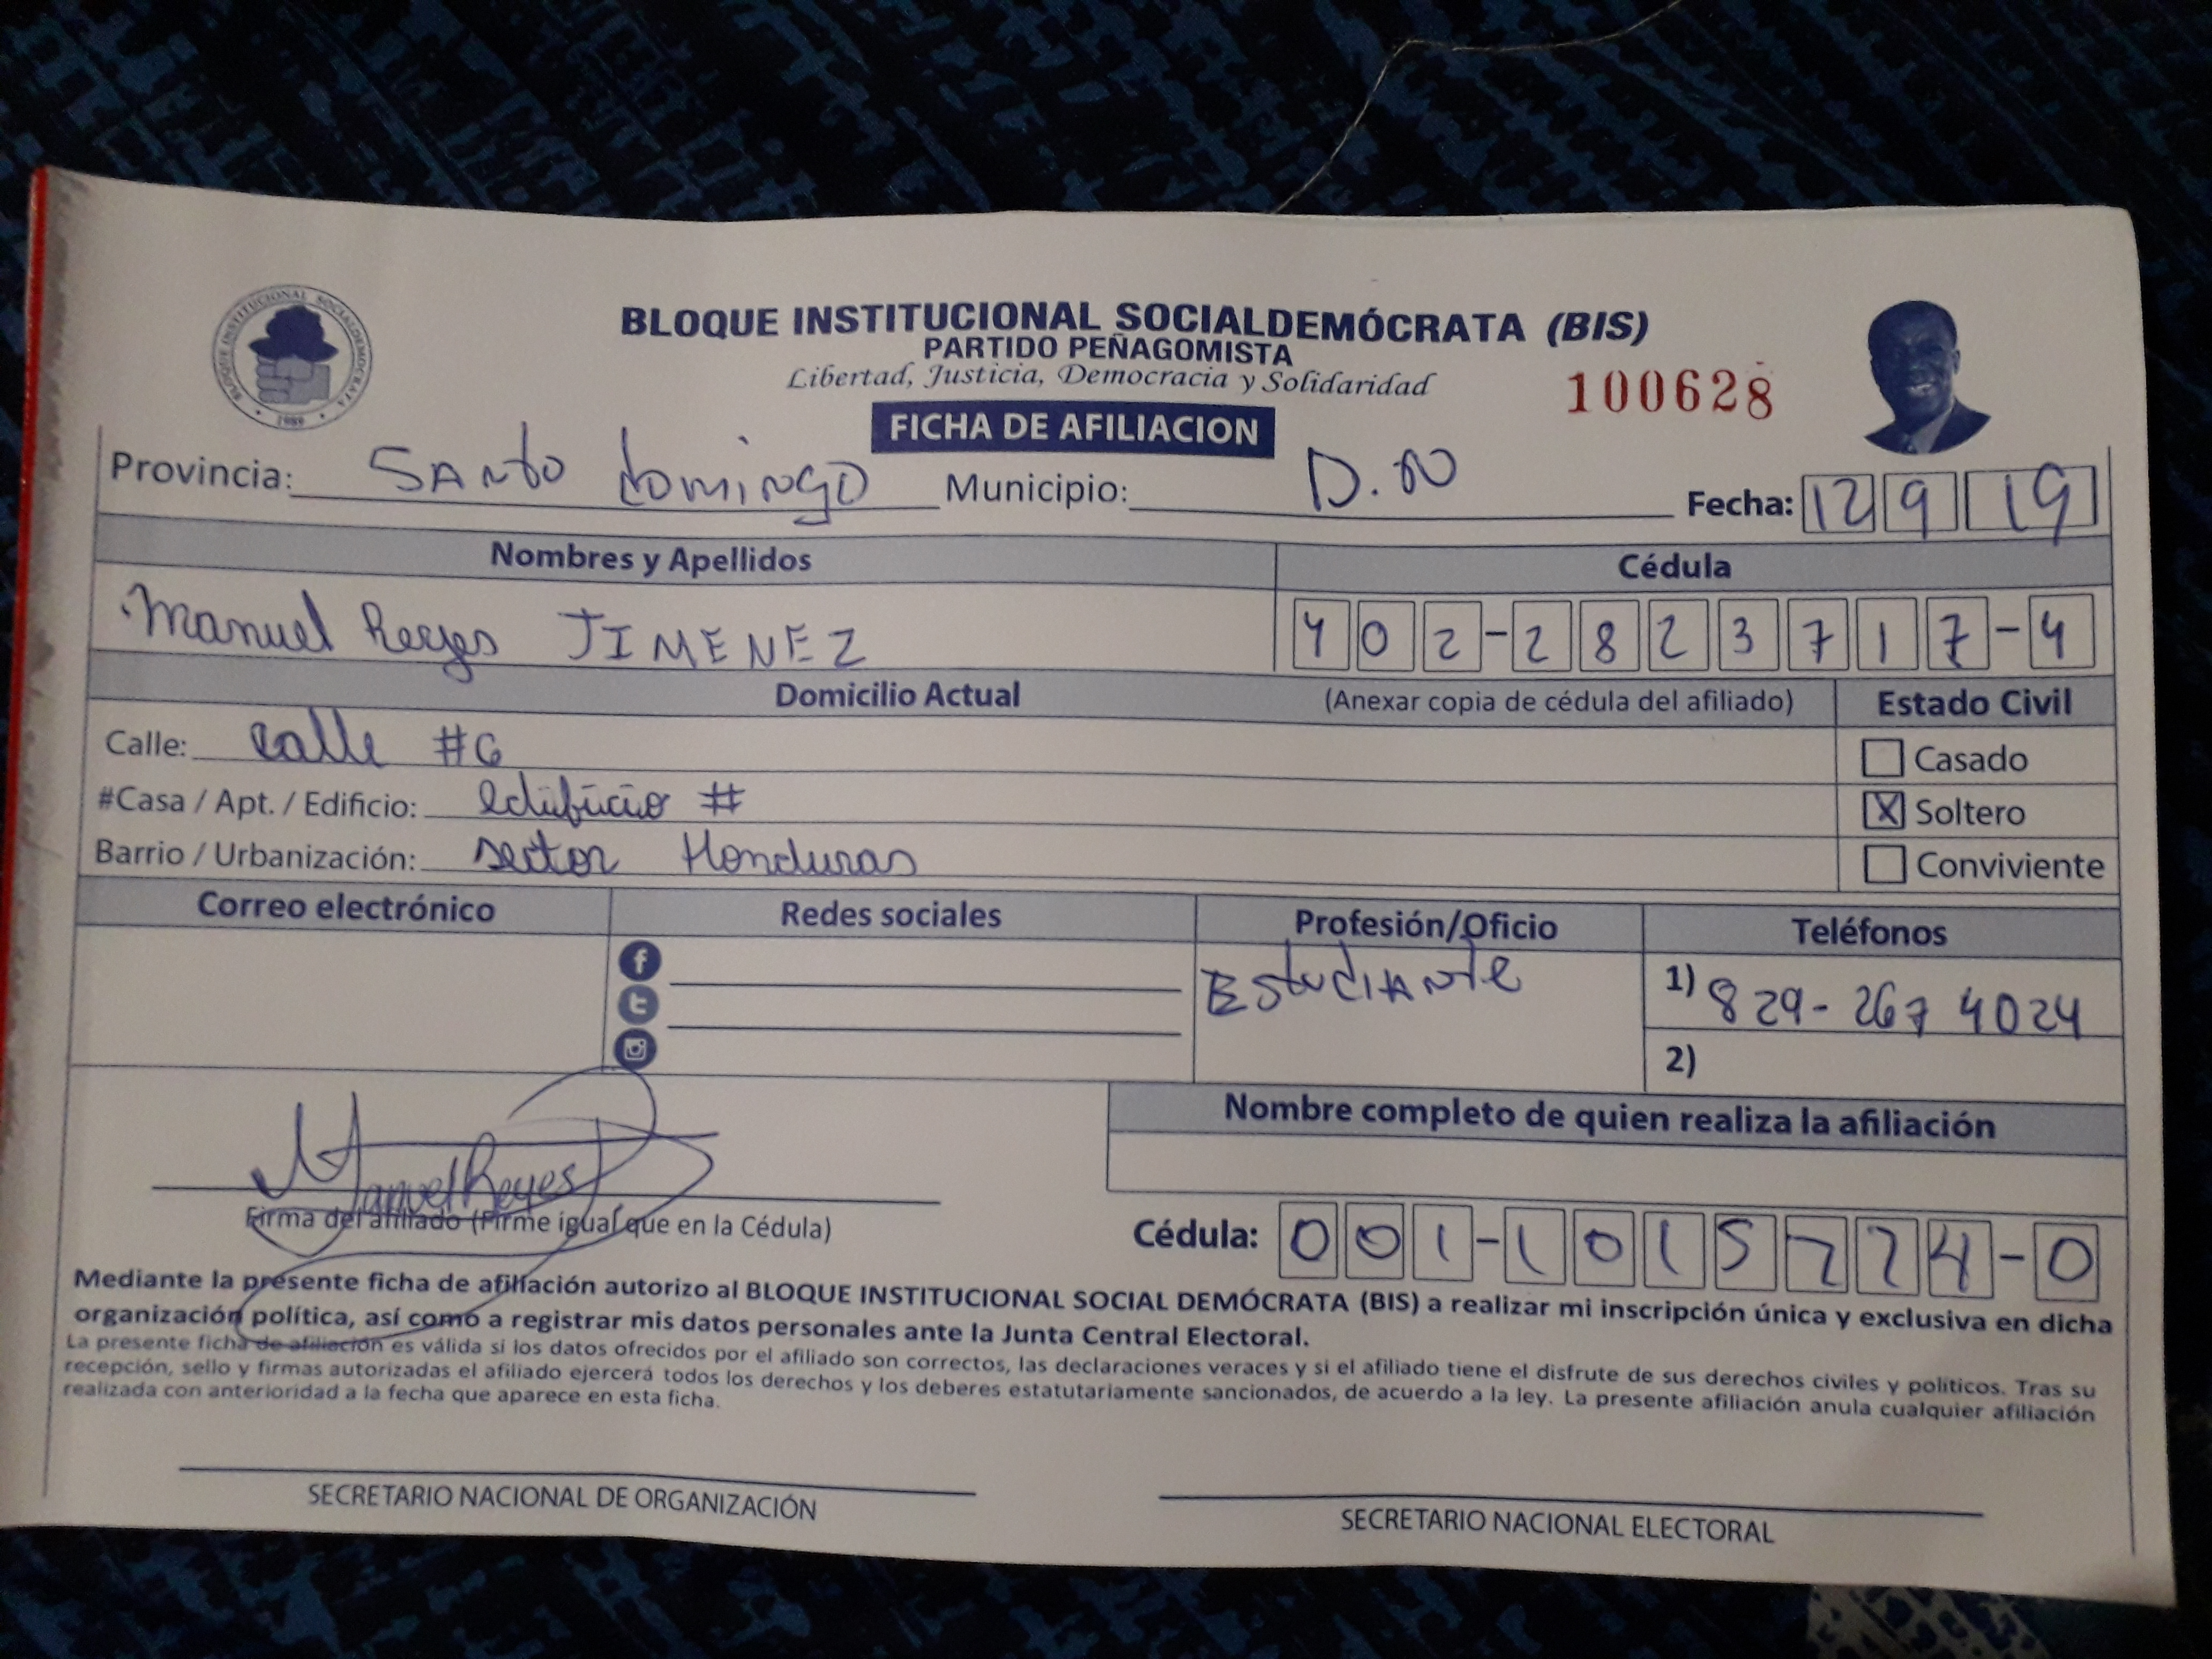 BLOQUE INSTITUCIONAL SOCIALDEMOCRATA
1989
BLOQUE INSTITUCIONAL SOCIALDEMÓCRATA (BIS)
PARTIDO PEÑAGOMISTA
Libertad, Justicia, Democracia y Solidaridad
100628
FICHA DE AFILIACION
Provincia: SANto domingo Municipio: D.N Fecha: 12 9 19
Nombres y Apellidos Cédula
Manuel Reyes JIMENEZ 402-2823717-4
Domicilio Actual (Anexar copia de cédula del afiliado) Estado Civil
Calle: calle #6 Casado
#Casa / Apt. / Edificio: edificio # X Soltero
Barrio / Urbanización: sector Honduras Conviviente
Correo electrónico Redes sociales Profesión/Oficio Teléfonos
EstudiANte 1) 829-267 4024
2)
Nombre completo de quien realiza la afiliación
Manuel Reyes
Firma del afiliado (Firme igual que en la Cédula) Cédula: 001-1015724-0
Mediante la presente ficha de afiliación autorizo al BLOQUE INSTITUCIONAL SOCIAL DEMÓCRATA (BIS) a realizar mi inscripción única y exclusiva en dicha
organización política, así como a registrar mis datos personales ante la Junta Central Electoral.
La presente ficha de afiliación es válida si los datos ofrecidos por el afiliado son correctos, las declaraciones veraces y si el afiliado tiene el disfrute de sus derechos civiles y políticos. Tras su
recepción, sello y firmas autorizadas el afiliado ejercerá todos los derechos y los deberes estatutariamente sancionados, de acuerdo a la ley. La presente afiliación anula cualquier afiliación
realizada con anterioridad a la fecha que aparece en esta ficha.
SECRETARIO NACIONAL DE ORGANIZACIÓN SECRETARIO NACIONAL ELECTORAL